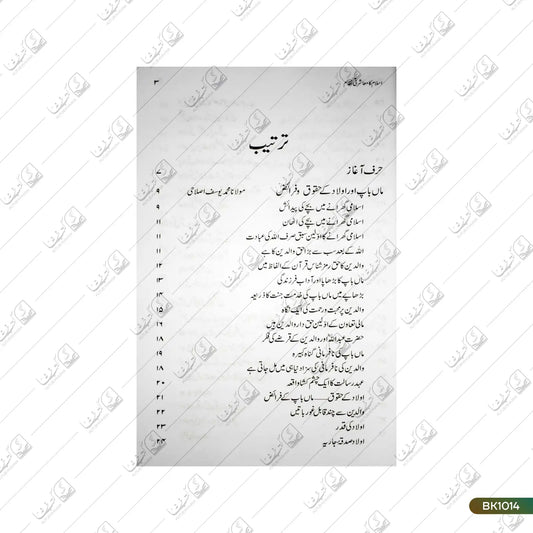 اسلام کا معاشرتی نظام ۳
ترتیب
حرف آغاز ۷
ماں باپ اور اولاد کے حقوق و فرائض مولانا محمد یوسف اصلاحی ۹
اسلامی گھرانے میں بچے کی پیدائش ۹
اسلامی گھرانے میں بچے کی اٹھان ۱۱
اسلامی گھرانے کا اولین سبق صرف اللہ کی عبادت ۱۱
اللہ کے بعد سب سے بڑا حق والدین کا ہے ۱۱
والدین کا حق رمز شناس قرآن کے الفاظ میں ۱۲
ماں باپ کا بڑھاپا اور آداب فرزندگی ۱۳
بڑھاپے میں ماں باپ کی خدمت جنت کا ذریعہ ۱۴
والدین پر محبت و رحمت کی ایک نگاہ ۱۵
مالی تعاون کے اولین حق دار والدین ہیں ۱۶
حضرت عبداللہؓ اور والدین کے قرضے کی فکر ۱۸
ماں باپ کی نافرمانی گناہ کبیرہ ۱۹
والدین کی نافرمانی کی سزا دنیا ہی میں مل جاتی ہے ۱۸
عہد رسالت کا ایک چشم کشا واقعہ ۲۰
اولاد کے حقوق ـــــ ماں باپ کے فرائض ۲۱
والدین سے چند قابل غور باتیں ۲۲
اولاد کی قدر ۲۳
اولاد صدقۂ جاریہ ۲۴
BK1014